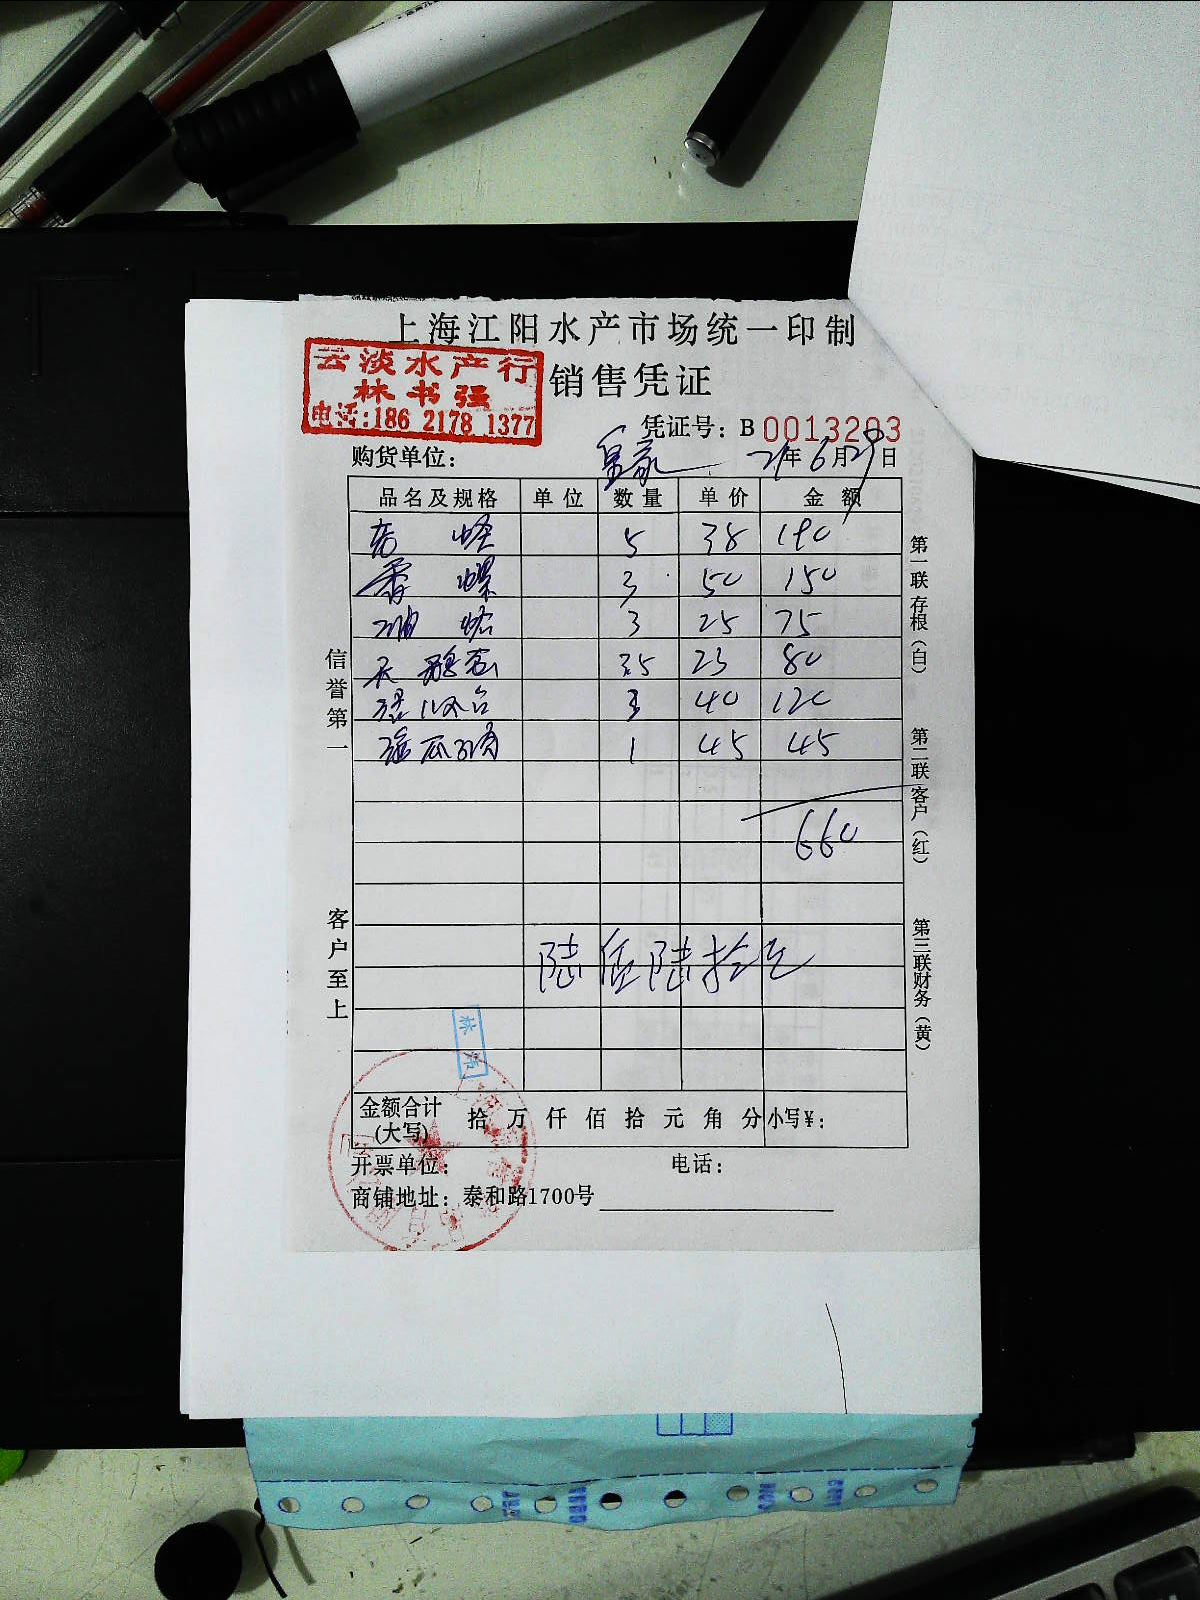 上海江阳水产市场统一印制
销售凭证
云淡水产行
林书强
电话:186 2178 1377
凭证号: B 0013203
购货单位: 皇家 21年6月29日
品名及规格 单位 数量 单价 金额
5 38 190
香螺 3 50 150
3 25 75
35 23 80
3 40 120
1 45 45
660
陆佰陆拾元
信誉第一
客户至上
第一联存根(白)
第二联客户(红)
第三联财务(黄)
林
金额合计(大写) 拾 万 仟 佰 拾 元 角 分 小写¥:
开票单位: 电话:
商铺地址: 泰和路1700号